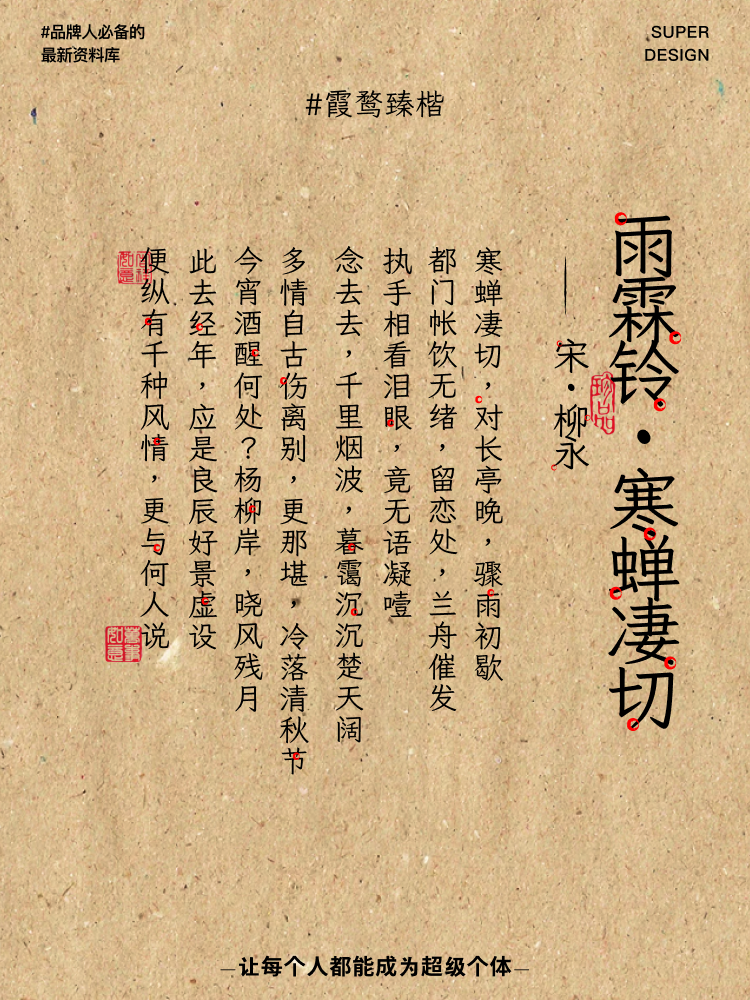 #品牌人必备的
最新资料库
SUPER
DESIGN
#霞鹜臻楷
雨霖铃·寒蝉凄切
——宋·柳永
寒蝉凄切，对长亭晚，骤雨初歇
都门帐饮无绪，留恋处，兰舟催发
执手相看泪眼，竟无语凝噎
念去去，千里烟波，暮霭沉沉楚天阔
多情自古伤离别，更那堪，冷落清秋节
今宵酒醒何处？杨柳岸，晓风残月
此去经年，应是良辰好景虚设
便纵有千种风情，更与何人说
—让每个人都能成为超级个体—